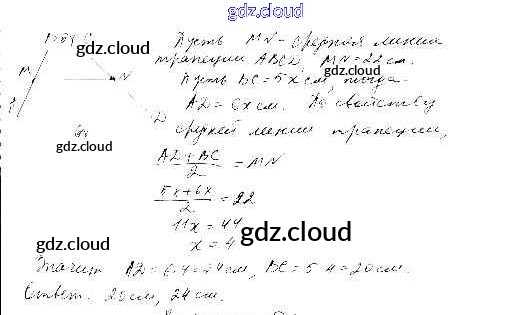 gdz.cloud
gdz.cloud
Пусть MN - средняя линия
трапеции ABCD, MN = 22 см.
M
N
Пусть BC = 5x см, тогда
AD = 6x см. По свойству
D
средней линии трапеции,
6x
gdz.cloud
AD + BC / 2 = MN
5x + 6x / 2 = 22
11x = 44
x = 4
gdz.cloud
gdz.cloud
Значит AD = 6·4 = 24 см, BC = 5·4 = 20 см.
Ответ. 20 см, 24 см.